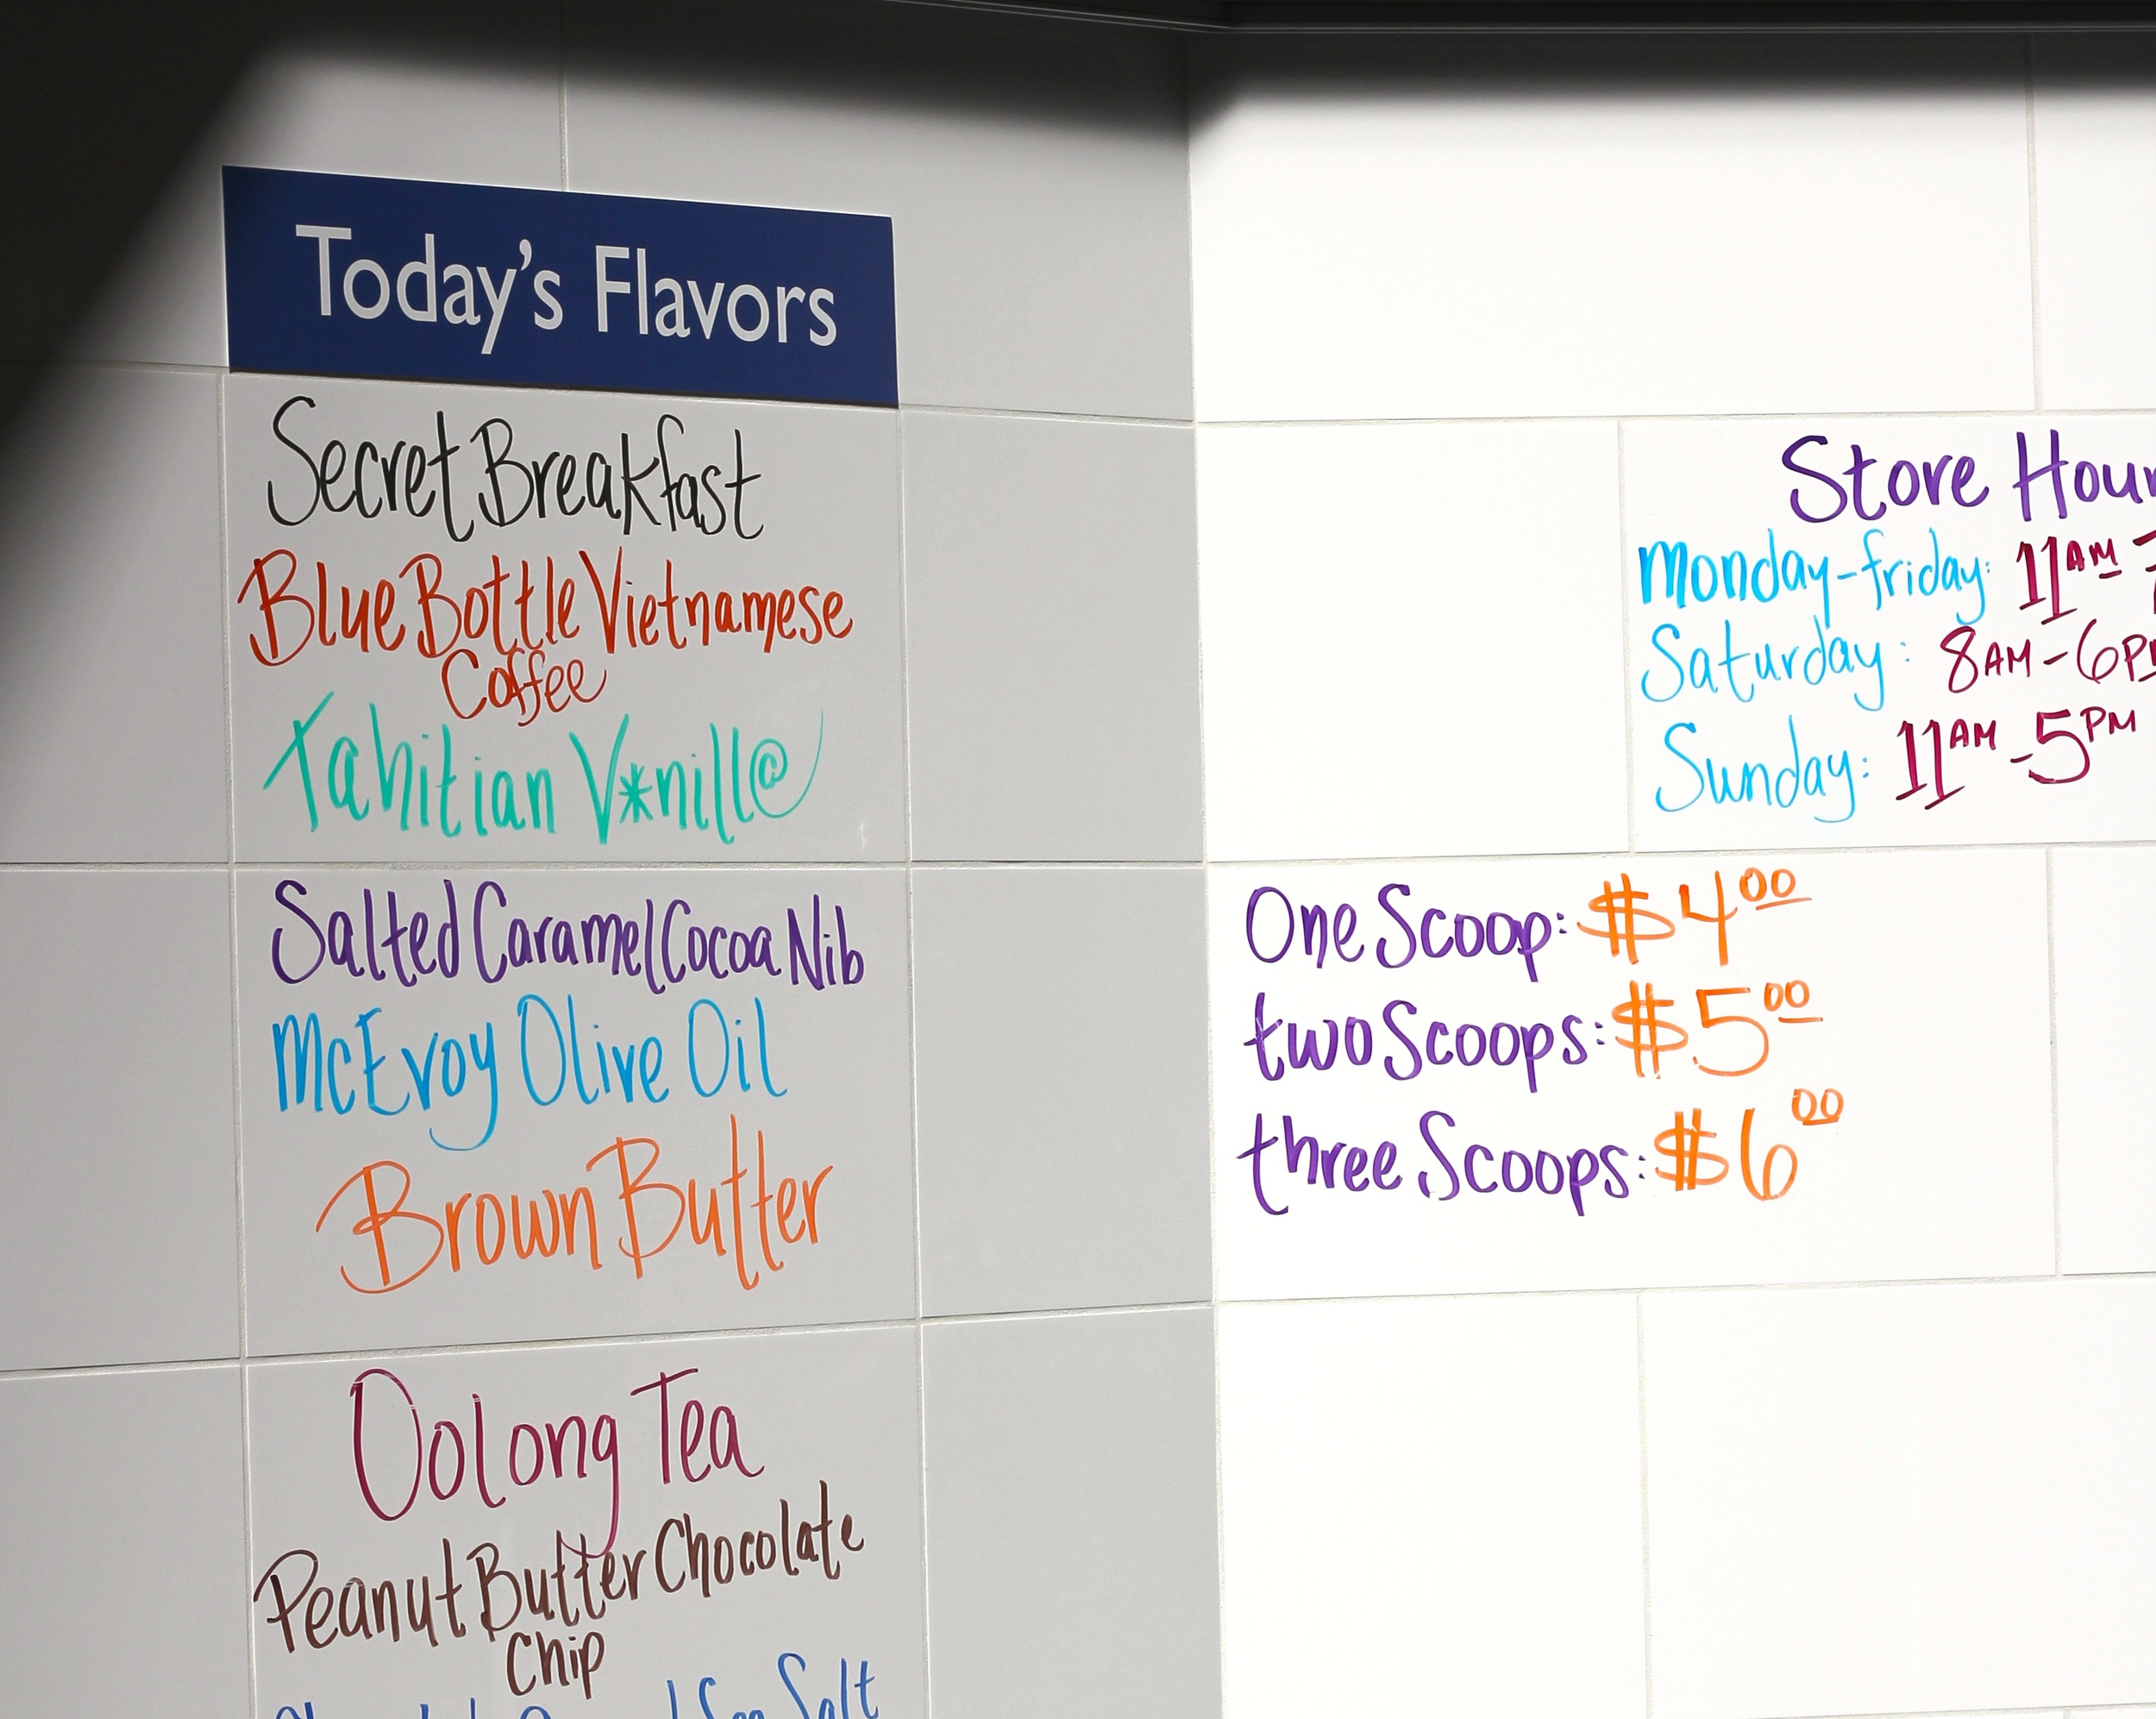 Today's Flavors
Secret Breakfast
Blue Bottle Vietnamese
Coffee
Tahitian V*nill@
Salted Caramel Cocoa Nib
McEvoy Olive Oil
Brown Butter
Oolong Tea
Peanut Butter Chocolate
Chip
Sea Salt
Store Hour
Monday-friday: 11AM
Saturday: 8AM-6PM
Sunday: 11AM-5PM
One Scoop: $400
two Scoops: $500
three Scoops: $600